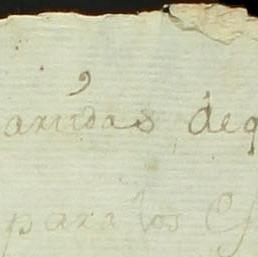 arridas deq
para los Es